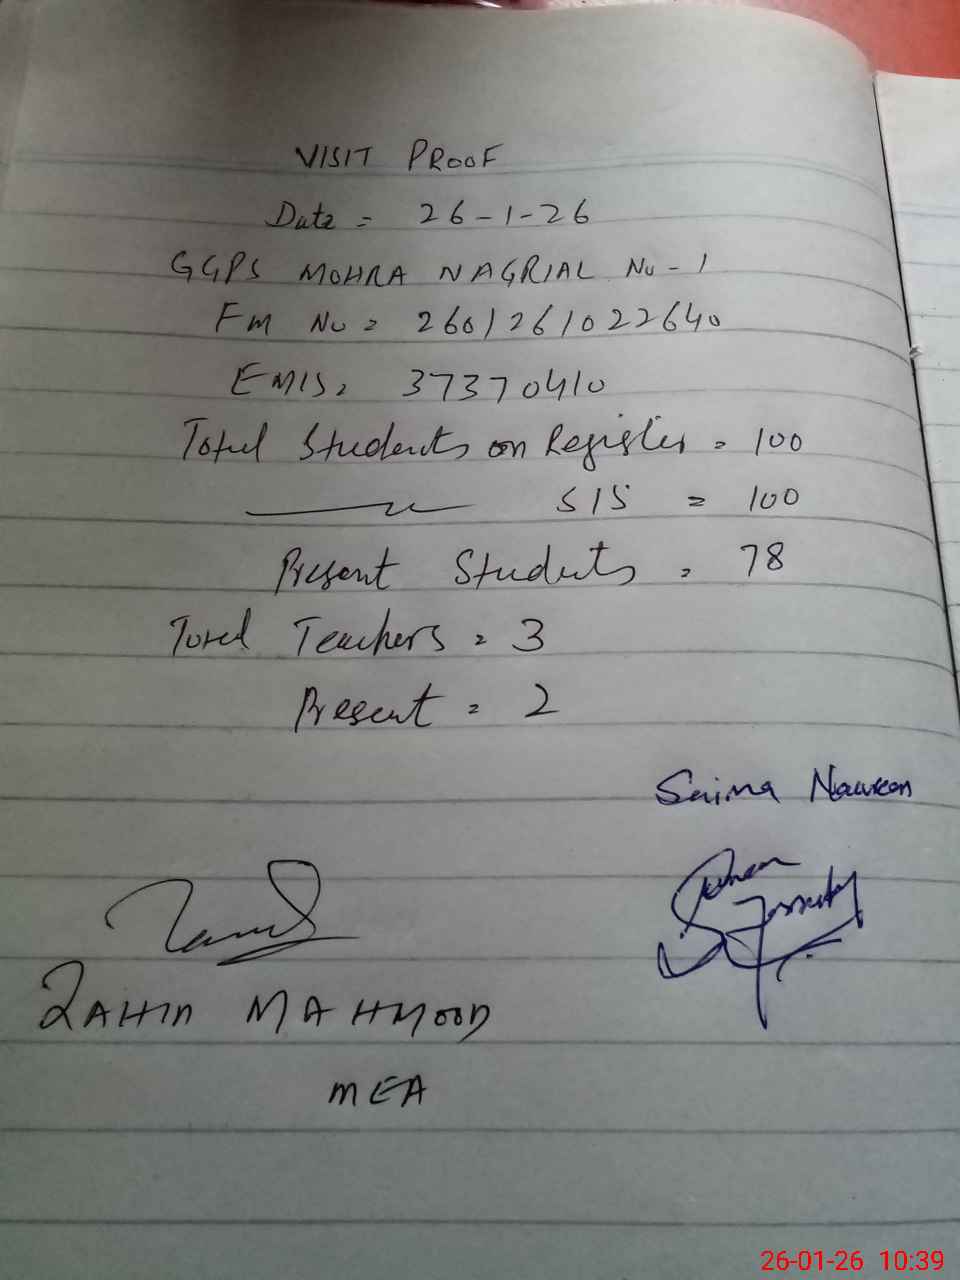 VISIT PROOF
Date = 26-1-26
GGPS MOHRA NAGRIAL No-1
Fm No = 2601261022640
EMIS = 37370410
Total Students on Register = 100
SIS = 100
Present Students = 78
Total Teachers = 3
Present = 2
Saima Nawreen
MAHMOOD
MEA
26-01-26 10:39